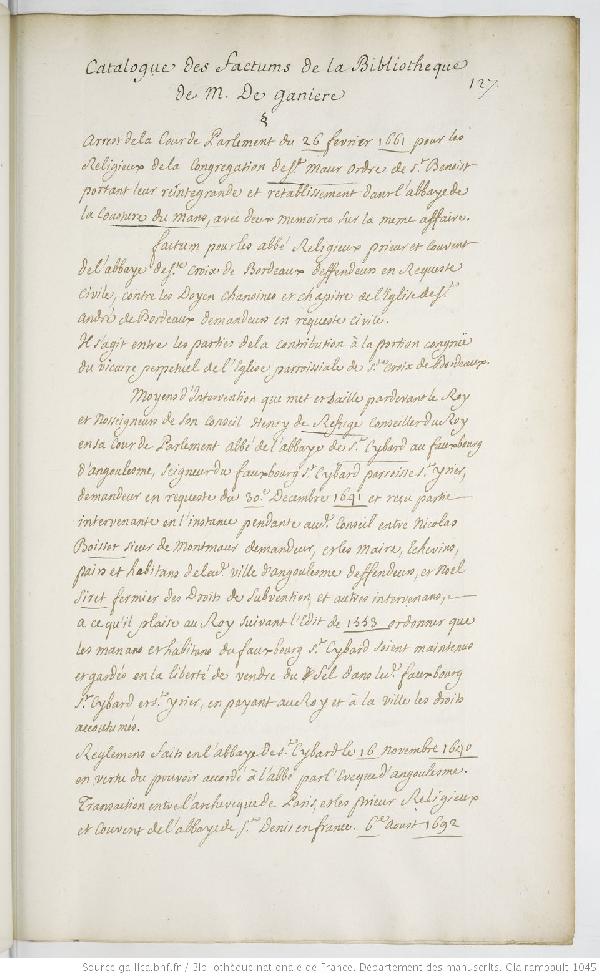 Catalogue des factums de la Bibliotheque
de M. De ganiere
127.
§
Arrest de la Cour de Parlement du 26 fevrier 1661 pour les
Religieux de la Congregation de St. Maur Ordre de St. Benoist
portant leur reintegrande et retablissement dans l'abbaye de
la Couture du Mans, avec deux memoires sur la meme affaire.
factum pour les abbé Religieux prieur et Couvent
de l'abbaye de Ste. Croix de Bordeaux deffendeurs en Requeste
Civile, contre les Doyen Chanoines et chapitre de l'Eglise de St.
André de Bordeaux demandeurs en requeste civile.
Il s'agit entre les parties de la contribution à la portion congruë
du vicaire perpetuel de l'Eglise parroissiale de Ste. Croix de Bordeaux.
Moyens d'Intervention que met et baille pardevant le Roy
et Nosseigneurs de son Conseil Henry de Refuge Conseiller du Roy
en sa Cour de Parlement abbé de l'abbaye de St. Cybard au fauxbourg
d'angoulesme, Seigneur du fauxbourg St. Cybard parroisse St. yrier,
demandeur en requeste du 30e. Decembre 1641 et reçu partie
intervenante en l'instance pendante aud. Conseil entre Nicolas
Boisset sieur de Montmaur demandeur, et les Maire, Echevins,
pairs et habitans de lad. ville d'angoulesme deffendeurs, et Noel
Siret fermier des Droits de Subvention, et autres intervenans,
a ce qu'il plaise au Roy suivant l'Edit de 1553 ordonner que
les manans et habitans du fauxbourg St. Cybard soient maintenus
et gardés en la liberté de vendre du Sel dans led. fauxbourg
St. Cybard et St. yrier, en payant au Roy et à la ville les droits
accoutumés.
Reglemens faits en l'abbaye de St. Cybard le 16 novembre 1640
en vertu du pouvoir accordé à l'abbé par l'Eveque d'angoulesme.
Transaction entre l'archeveque de Paris, et les prieur Religieux
et Couvent de l'abbaye de St. Denis en france. 6e. Aoust 1692
Source gallica.bnf.fr / Bibliothèque nationale de France. Département des manuscrits. Clairambault 1045